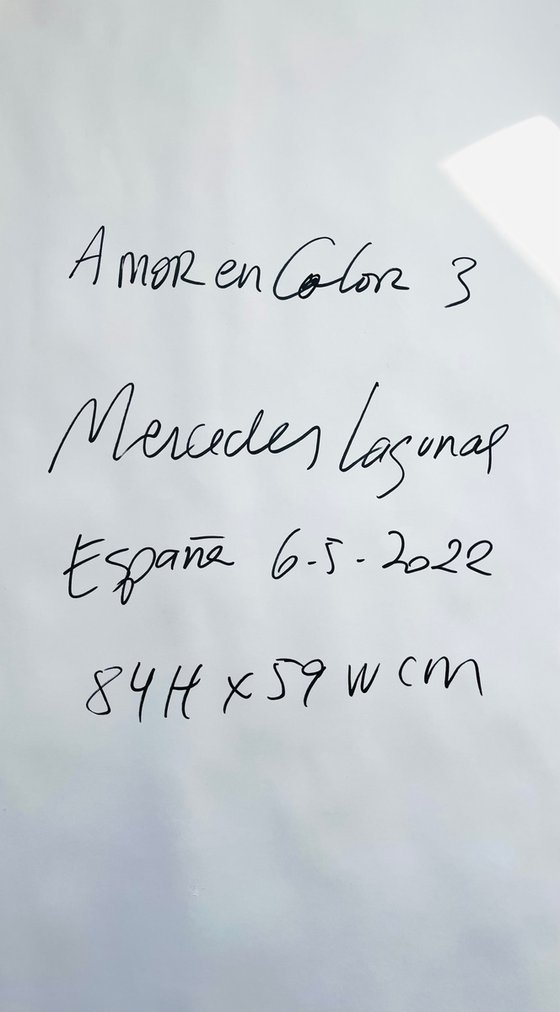 Amor en Color 3
Mercedes Lagunas
España 6-5-2022
84H x 59 W cm